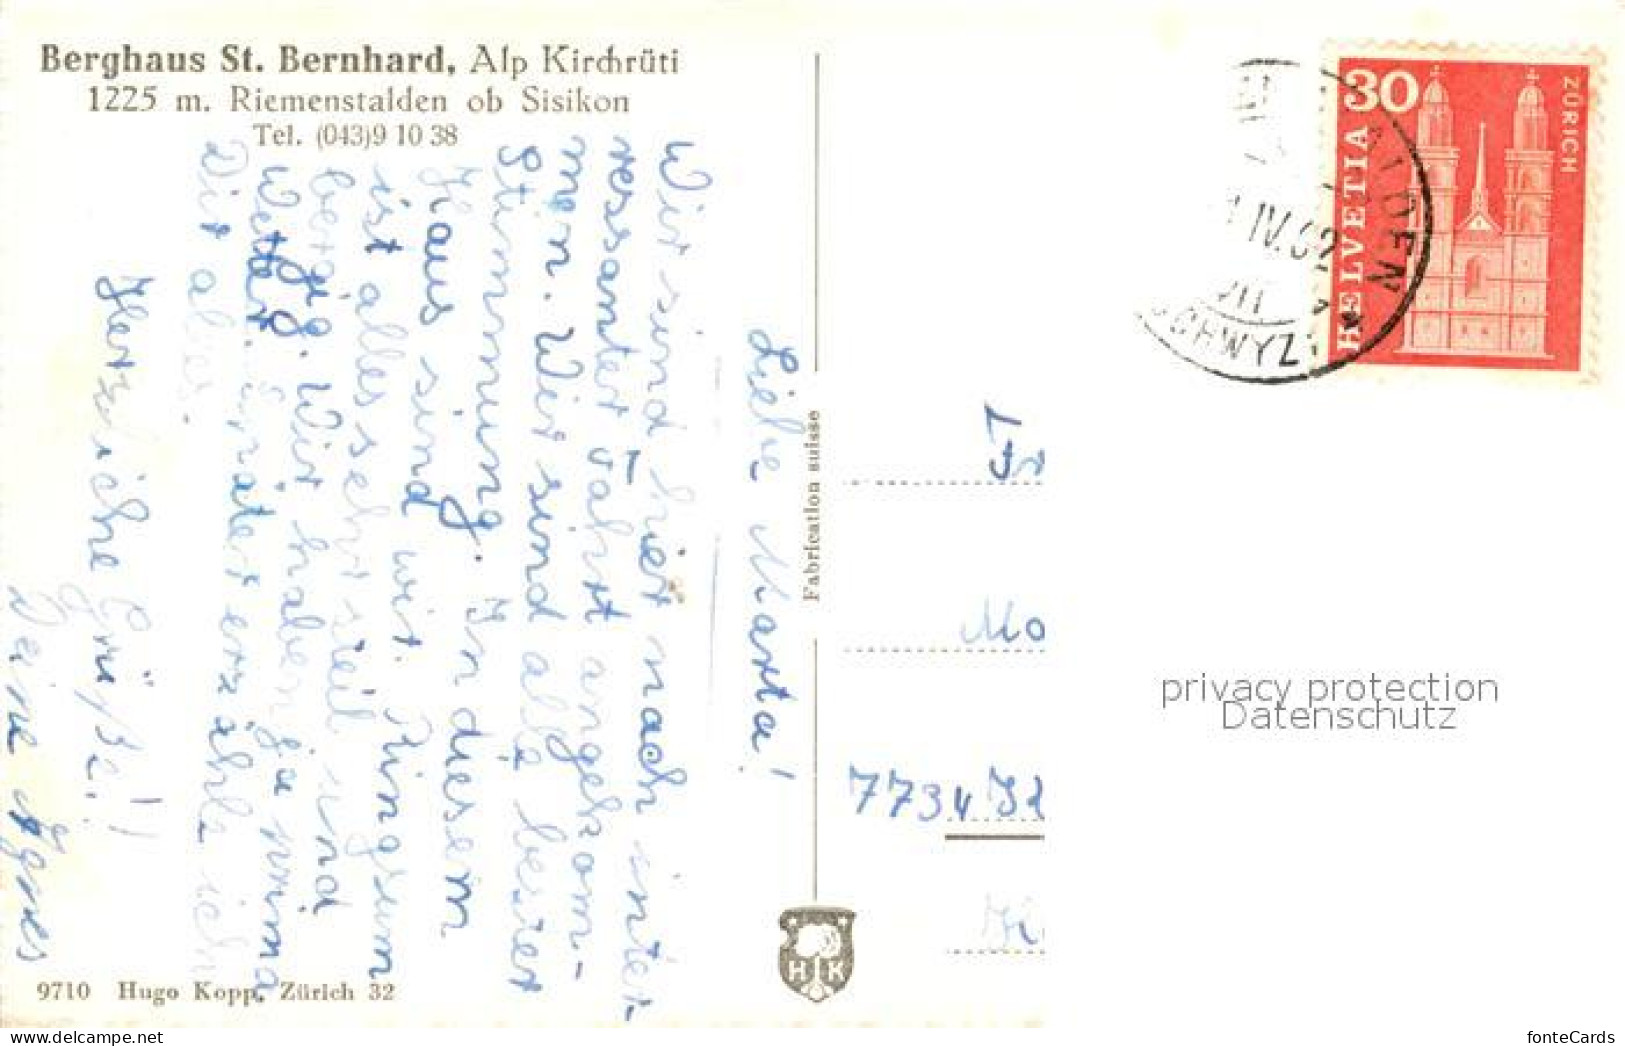 Berghaus St. Bernhard, Alp Kirchrüti
1225 m. Riemenstalden ob Sisikon
Tel. (043) 9 10 38
Liebe Marta!
Wir sind hier nach inter-
ressanter Fahrt angekom-
men. Wir sind alle bester
Stimmung. In diesem
Haus sind wir. Ringsum
ist alles sehr steil und
bergig. Wir haben ja prima
Wetter. Später erzähle ich
Dir alles.
Herzliche Grüße!!
Deine Agnes
9710 Hugo Kopp, Zürich 32
Fabrication suisse
H K
30
HELVETIA
ZÜRICH
IV. 62
SCHWYZ
Fr
Mo
7734
privacy protection
Datenschutz
www.delcampe.net
fonteCards